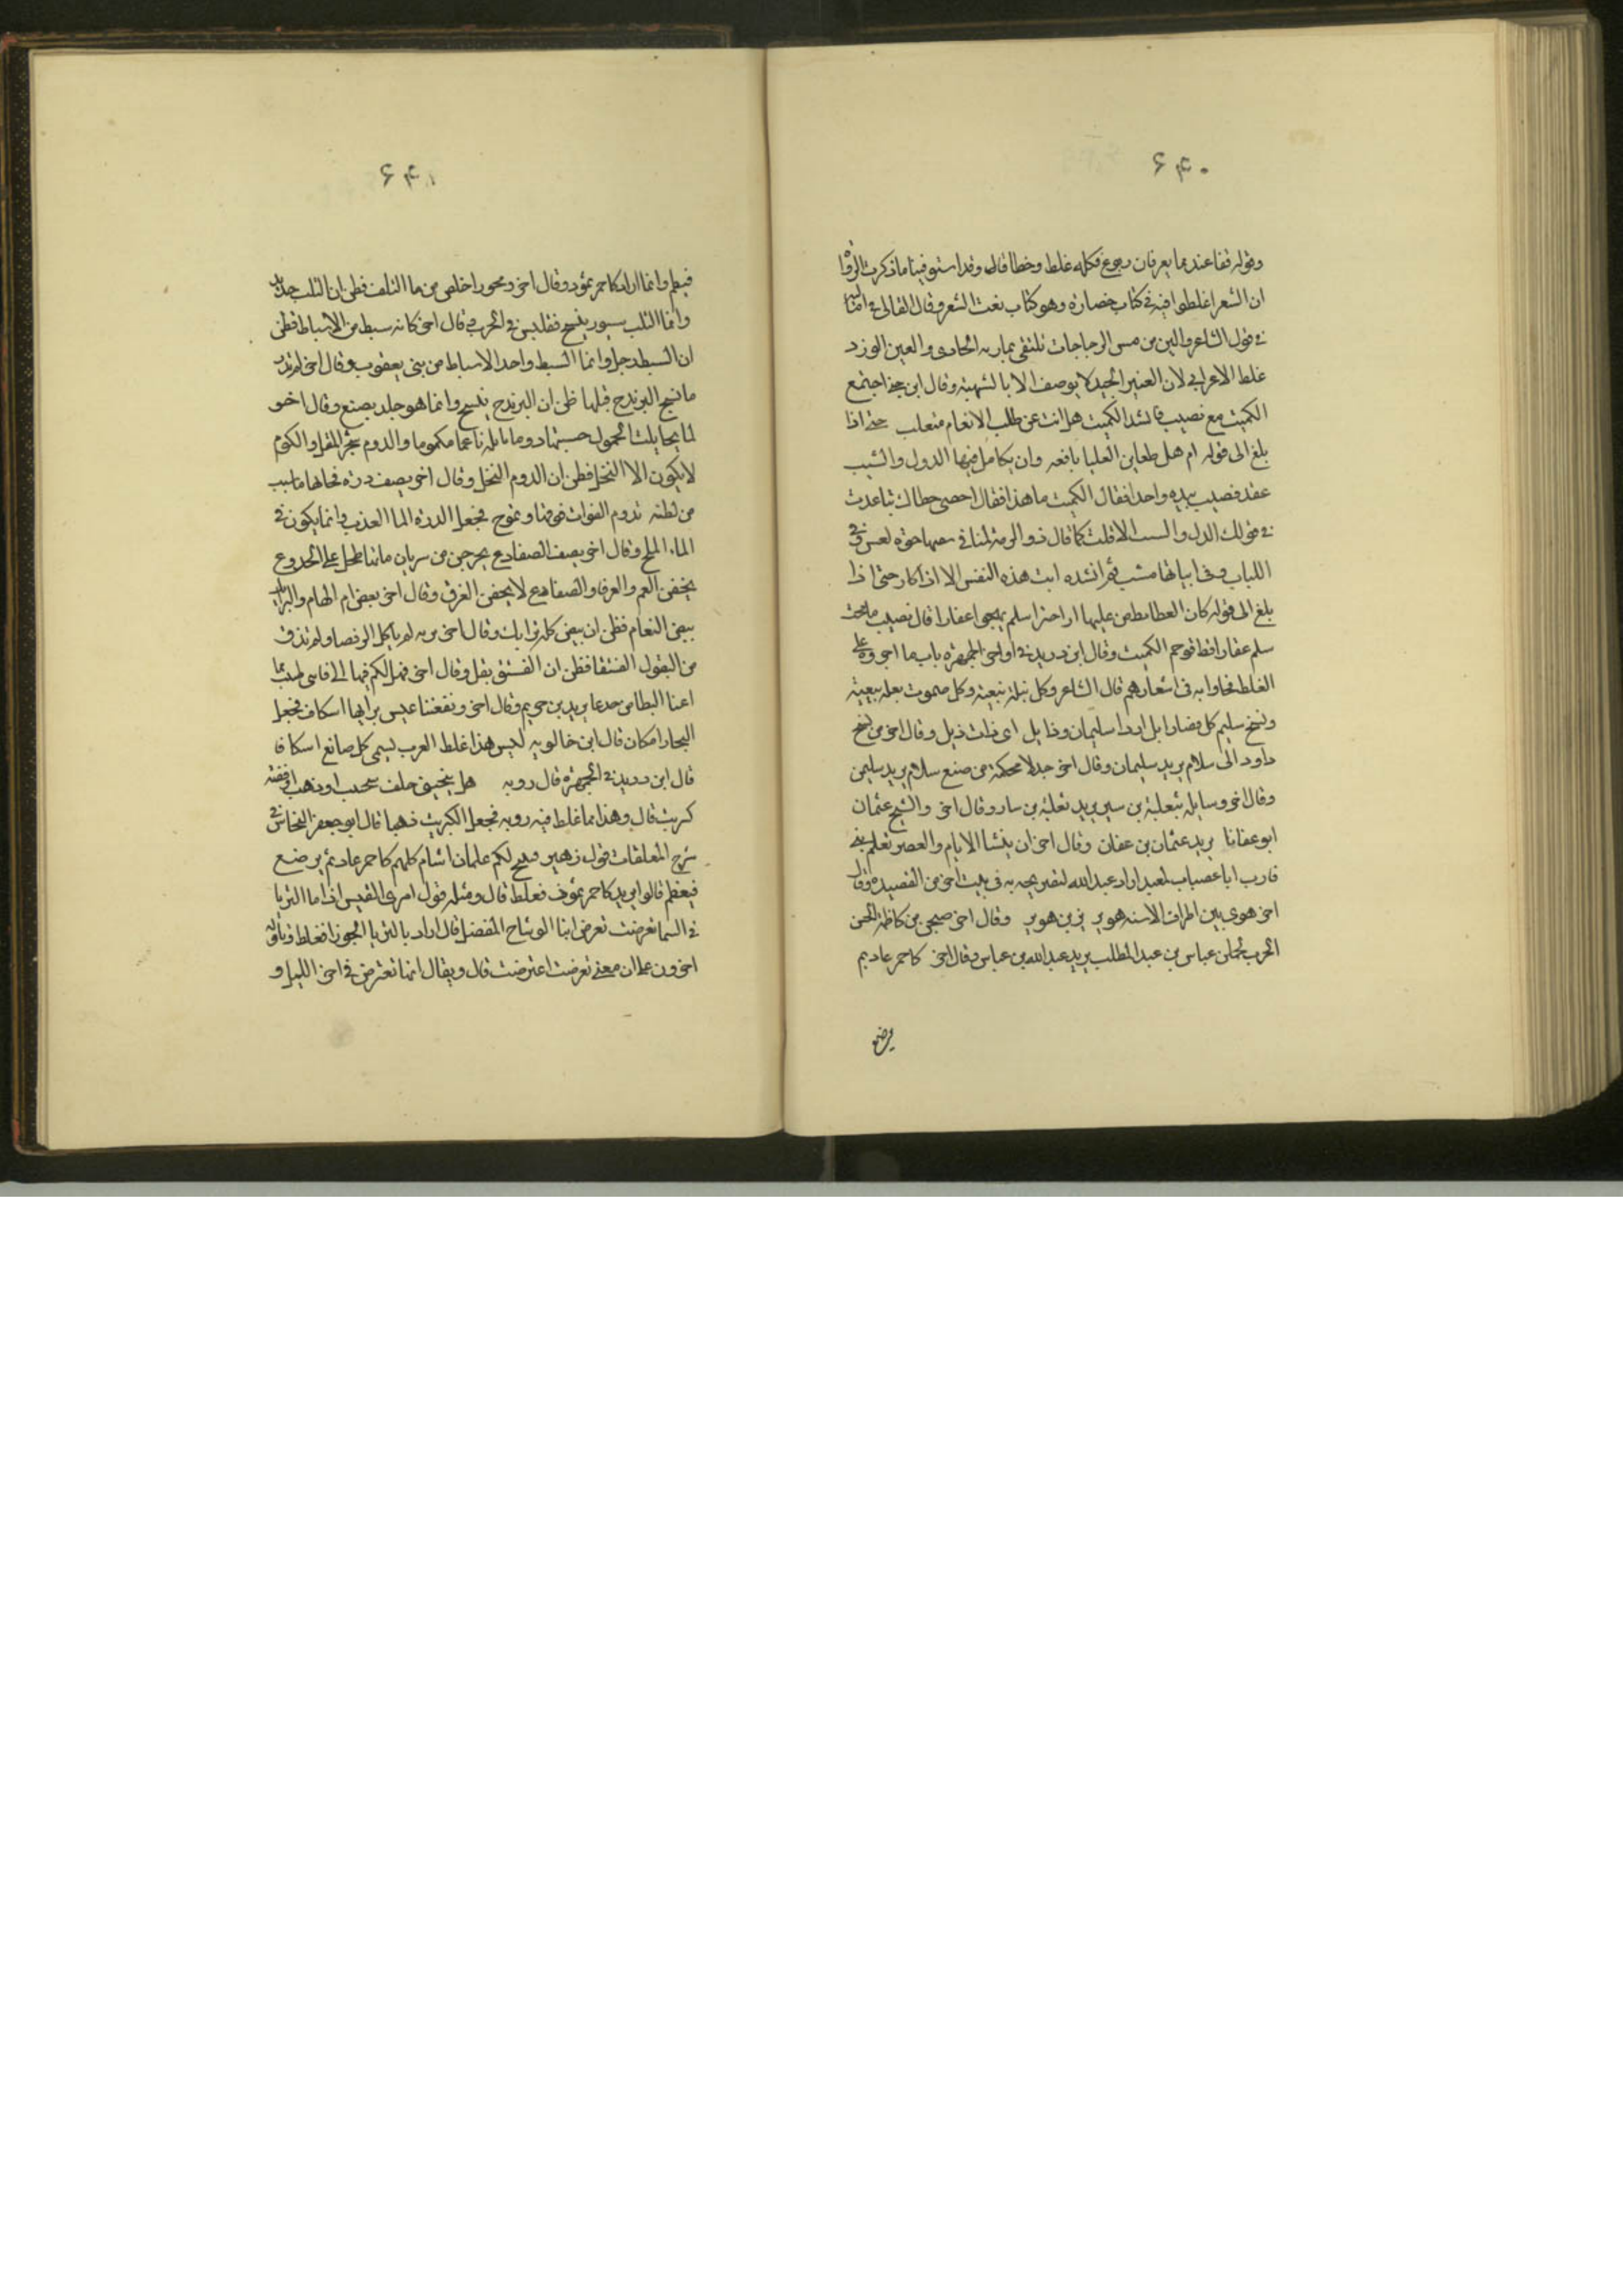 ۶۴۰
وقوله قفا عند مما يعرفان ربوع فكله غلط وخطا قال وقد استوفينا ما ذكرت الرواة
ان الشعرا غلطوا فيه في كتاب خضارة وهو كتاب نعت الشعر وقال القالى في اماليه
في قول الشاعر والين من مس الرجاجات تلتقى بمارية الحادى والعين الورد
غلط الاعرابي لان العنبر الجيد لا يوصف الا بالشهبة وقال ابن جني اجتمع
الكميت مع نصيب فانشد الكميت هل انت عن طلب الانعام متعلب حتى اذا
بلغ الى قوله ام هل ظعاين العليا يافعه وان تكامل فيها الدول والشيب
عقد نصيب بيده واحدا فقال الكميت ما هذا فقال احصى خطاك تباعدت
في قولك الدل والسب الا قلت كما قال ذو الرمة لميا في حوه لعس وفى
اللباب وفى انيابها شنب ثم انشده ابت هذه النفس الا اذكارا حتى اذا
بلغ الى قوله كان العطامط من عليها اراحيز اسلم يهجى اعفارا قال نصيب ما هجت
سلم عقارا قط فوجم الكميت وقال ابن دريد في اواخر الجمهرة باب ما اجروه على
الغلط فجاوا به في اشعارهم قال الشاعر وكل نبلة تبعيه وكل صموت بعله تبعيه
ونسج سليم كل قضا ذايل اراد سليمان وذايل اى ذات ذيل وقال اخر من نسج
داود الى سلام يريد سليمان وقال اخر جدلا محكمة من صنع سلام يريد سليمن
وقال اخر وسايلة بثعلبة بن سير يريد ثعلبة بن سيار وقال اخر والشيخ عثمان
ابو عفانا يريد عثمان بن عفان وقال اخر ان ينشا الايام والعصر تعلم بنى
قارب ايا غضياب لمعبد اراد عبد الله لتصريحه به في بيت اخر من القصيدة وقال
اخر هوى بين اطراف الاسنه هوبر يزيد بن هوبر وقال اخر صبحن من كاظمة الحصن
الخرب يحملن عباس بن عبد المطلب يريد عبد الله بن عباس وقال اخر كاحمر عاد ثم
ترضع
۶۴۱
فتفطم وانما اراد كاحمر ثمود وقال اخر ومحور اخلص من ما اليلب فظن ان اليلب حديد
وانما اليلب سيور ينسج فتلبس في الحرب وقال اخر كانه سبط من الاسباط فظن
ان السبط رجل وانما السبط واحد الاسباط من بنى يعقوب وقال اخر لم تدر
ما نسج اليرندج قبلها ظن ان اليرندج ينسج وانما هو جلد يصنع وقال اخر
لما تحايلت الحمول حسبتها دوما بايلة ناعما مكموما والدوم شجر المقل والكموم
لا يكون الا النخل فظن ان الدوم النخل وقال اخر يصف درة فجا بها ما شيت
من لطمة تدوم الفرات فوقها وتموج فجعل الدرة الما العذب وانما يكون في
الماء الملح وقال اخر يصف الضفادع يخرجن من سربات ماءها طحل على الجذوع
يخفن الغم والغرقا والضفادع لا يخفن الغرق وقال اخر بعض ام الهام والتراب
بيض النعام فظن ان بيض كله ترايك وقال اخر بريه لم تاكل المرفقا ولم تذق
من البقول الفستقا فظن ان الفستق بقل وقال اخر فهل لكم فيها الى فانى طبيب بما
اعيا النطاسى حذيما يريد بن حريم وقال اخر وشعبتا ميس براها اسكاف فجعل
النجار اسكاف قال ابن خالويه ليس هذا غلط العرب يسمى كل صانع اسكافا
قال ابن دريد في الجمهرة قال روبه هل ينجينى حلف سحيت او ذهب او فضة
كبريت قال وهذا مما غلط فيه روبه فجعل الكبريت ذهبا قال ابو جعفر النحاس في
شرح المعلقات قول زهير فتنتج لكم غلمان اشام كلهم كاحمر عاد ثم ترضع
فتفطم قالوا يريد كاحمر ثمود فغلط قال ومثله قول امرى القيس اذا ما الثريا
في السما تعرضت تعرض اثنا الوشاح المفضل قال اراد بالثريا الجوزا فغلط وتاوله
اخرون على ان معنى تعرضت اعترضت قال ويقال انها تعترض في اخر الليل و